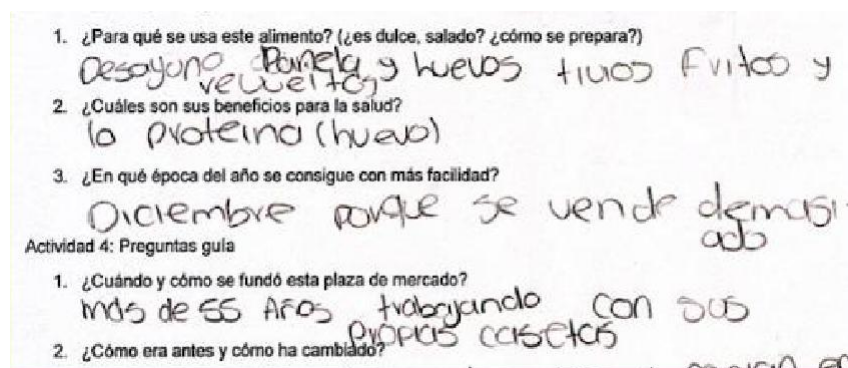 1. ¿Para qué se usa este alimento? (¿es dulce, salado? ¿cómo se prepara?)
Desayuno Panela y huevos tivios Fritos y
revueltos
2. ¿Cuáles son sus beneficios para la salud?
la proteina (huevo)
3. ¿En qué época del año se consigue con más facilidad?
Diciembre porque se vende demasi
ado
Actividad 4: Preguntas guía
1. ¿Cuándo y cómo se fundó esta plaza de mercado?
más de 55 Años trabajando con sus
propias casetas
2. ¿Cómo era antes y cómo ha cambiado?